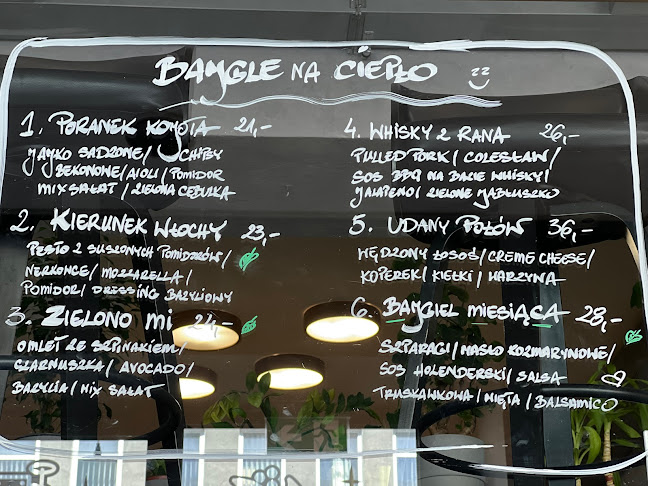 BAJGLE NA CIEPŁO
1. PORANEK KOJOTA 21,-
JAJKO SADZONE/ CHIPSY
BEKONOWE/ AIOLI/ POMIDOR
MIX SAŁAT/ ZIELONA CEBULKA
2. KIERUNEK WŁOCHY 23,-
PESTO Z SUSZONYCH POMIDORÓW/
NERKOWCE/ MOZZARELLA/
POMIDOR/ DRESSING BAZYLIOWY
3. ZIELONO MI 24,-
OMLET ZE SZPINAKIEM/
CZARNUSZKA/ AVOCADO/
BAZYLIA/ MIX SAŁAT
4. WHISKY Z RANA 26,-
PULLED PORK/ COLESŁAW/
SOS BBQ NA BAZIE WHISKY/
JALAPENO/ ZIELONE JABŁUSZKO
5. UDANY POŁÓW 36,-
WĘDZONY ŁOSOŚ/ CREME CHEESE/
KOPEREK/ KIEŁKI/ WARZYWA
6. BAJGIEL MIESIĄCA 28,-
SZPARAGI/ MASŁO ROZMARYNOWE/
SOS HOLENDERSKI/ SALSA
TRUSKAWKOWA/ MIĘTA/ BALSAMICO